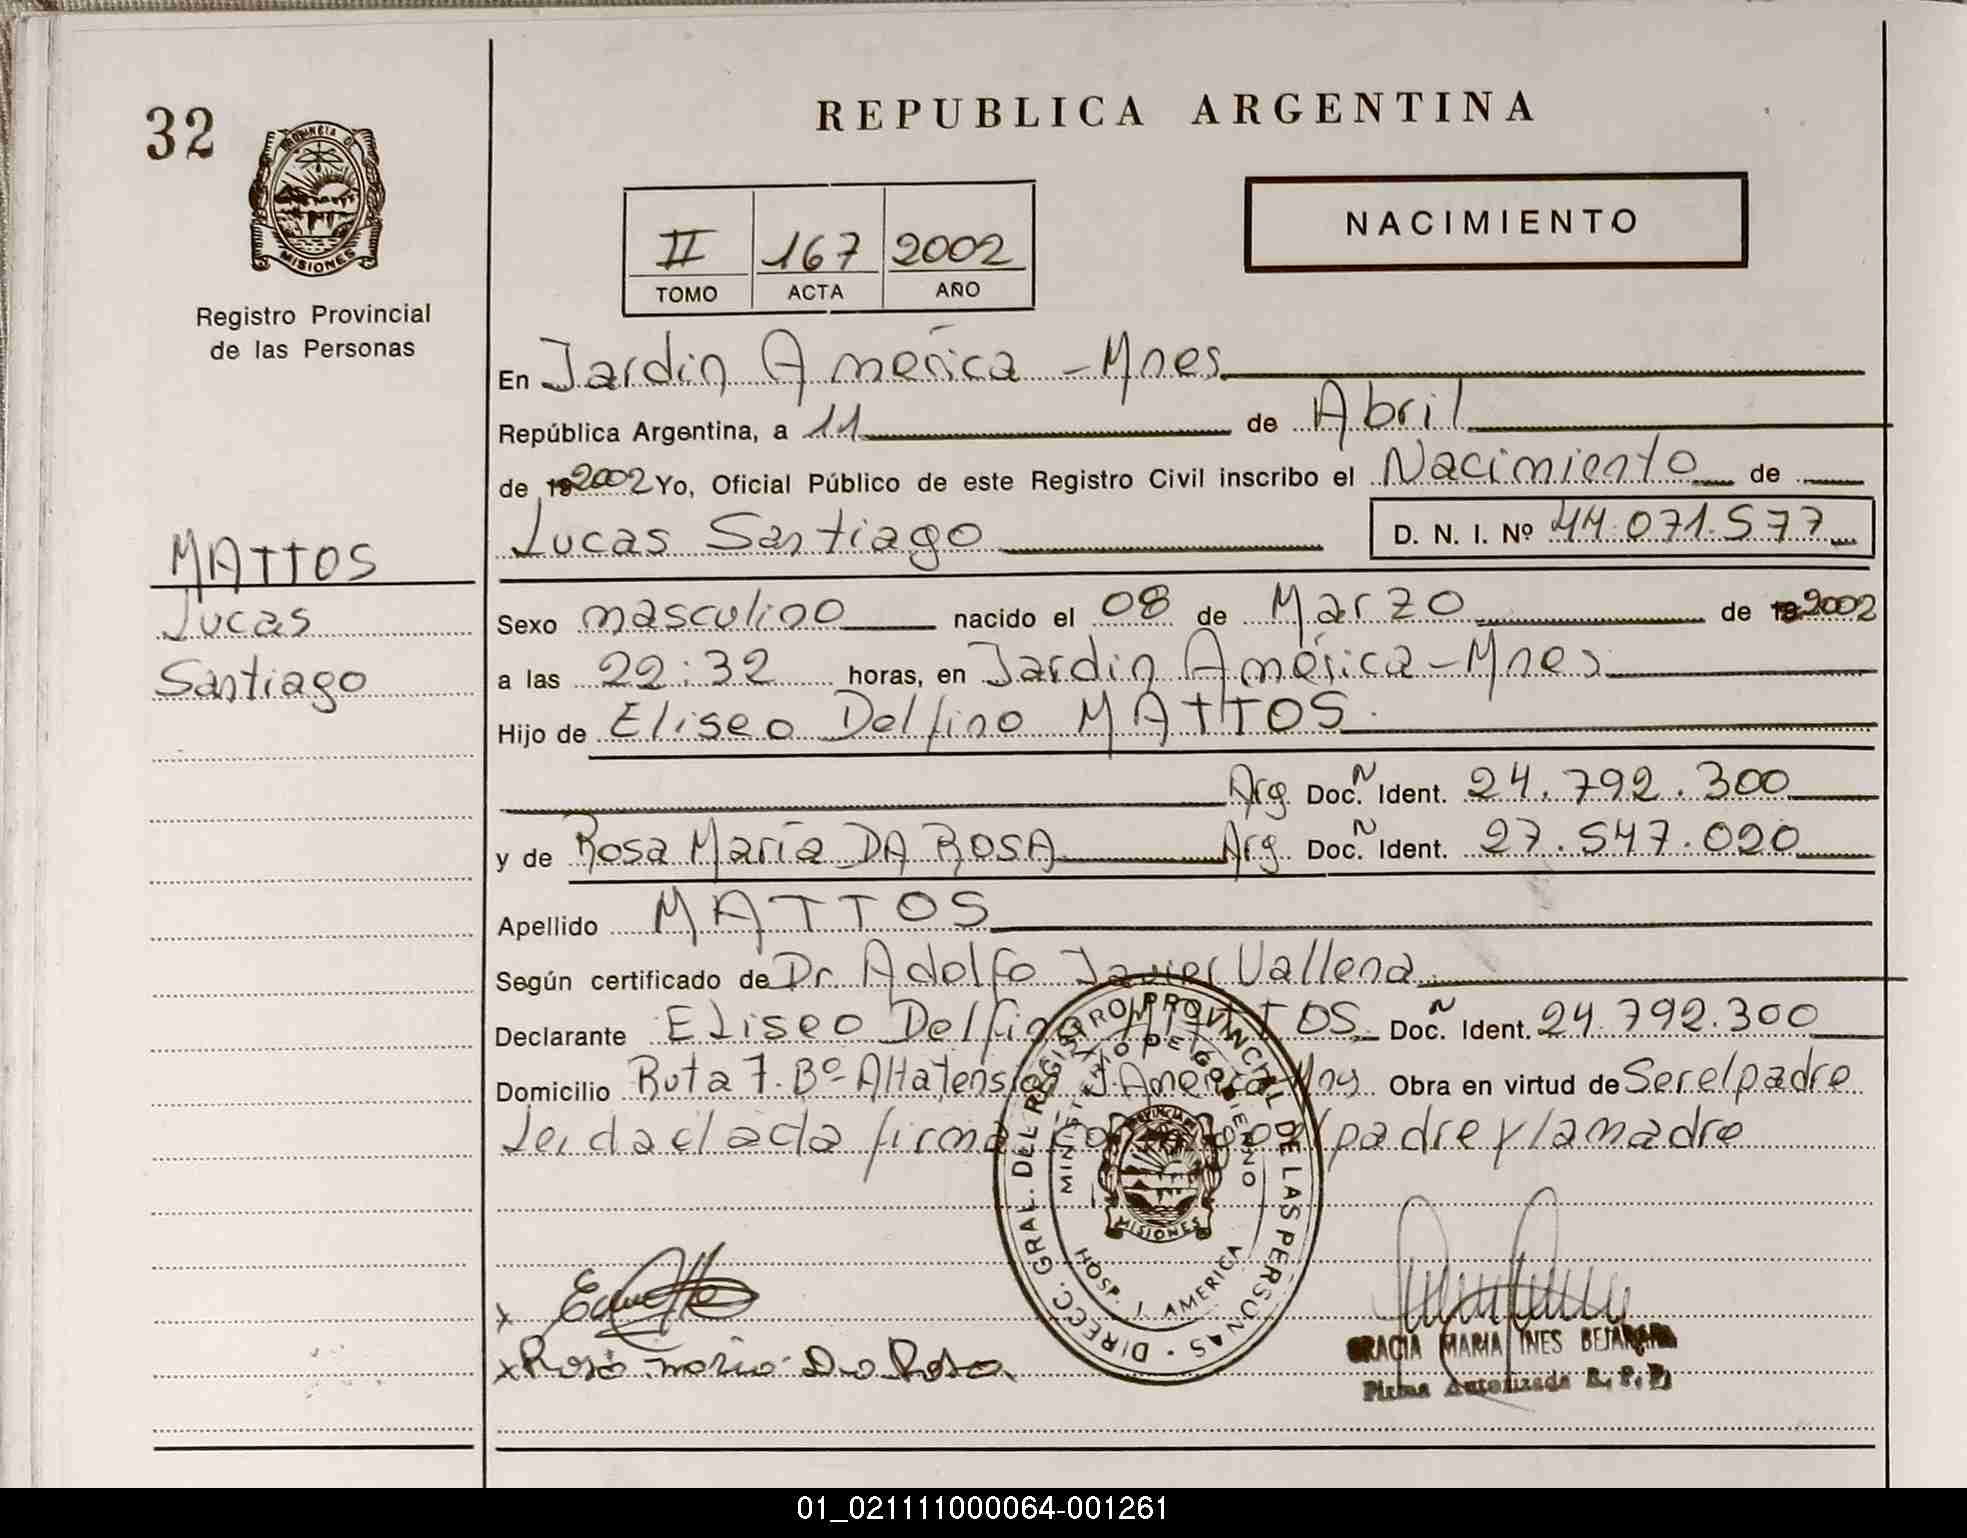 32
REPUBLICA ARGENTINA
PROVINCIA DE
MISIONES
Registro Provincial
de las Personas
NACIMIENTO
II 167 2002
TOMO ACTA AÑO
En Jardin América - Mnes
República Argentina, a 11 de Abril
de 19 2002 Yo, Oficial Público de este Registro Civil inscribo el Nacimiento de
Lucas Santiago D. N. I. Nº 44.071.577
MATTOS
Lucas
Santiago
Sexo masculino nacido el 08 de Marzo de 19 2002
a las 22:32 horas, en Jardin América - Mnes
Hijo de Eliseo Delfino MATTOS
Arg. Doc. N Ident. 24.792.300
y de Rosa María DA ROSA Arg. Doc. N Ident. 27.547.020
Apellido MATTOS
Según certificado de Dr. Adolfo Javier Vallena
Declarante Eliseo Delfino MATTOS Doc. N Ident. 24.792.300
Domicilio Ruta 7. Bº Alta Tensión J. América Mns Obra en virtud de Ser el padre
Leida el acta firma el padre y la madre
DIRECC. GRAL. DEL REGISTRO PROVINCIAL DE LAS PERSONAS
MINISTERIO DE GOBIERNO
MISIONES
HOSP. J. AMERICA
x
x Rosa maria Da Rosa
GRACIA MARIA INES BEJARANO
Firma Autorizada R. P. P.
01_021111000064-001261